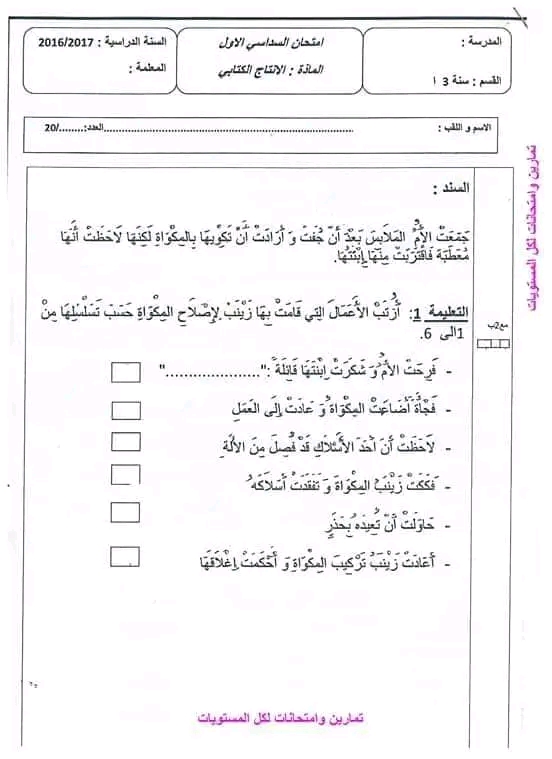 المدرسة :
القسم : سنة 3 ا
امتحان السداسي الاول
المادة : الانتاج الكتابي
السنة الدراسية : 2016/2017
المعلمة :
الاسم و اللقب : ................................................العدد:......../20
السند :
جَمَعَتْ الأُمُّ المَلاَبِسَ بَعْدَ أَنْ جُفَتْ وَ أَرَادَتْ أَنْ تَكْوِيهَا بِالمِكْوَاةِ لَكِنَّهَا لاَحَظَتْ أَنَّهَا
مُعَطَّبَة فَاقْتَرَبَتْ مِنْهَا إِبْنَتُهَا.
التعليمة 1: أُرَتِّبُ الأَعْمَالَ التِي قَامَتْ بِهَا زَيْنَبُ لِإِصْلاَحِ المِكْوَاةِ حَسَبَ تَسَلْسُلِهَا مِنْ
1الى 6.
مع2ب
- فَرِحَتْ الأُمُّ وَ شَكَرَتْ إِبْنَتَهَا قَائِلَةً :"..................."
- فَجْأَةً أَضَاءَتْ المِكْوَاةُ وَ عَادَتْ إِلَى العَمَلِ
- لاَحَظَتْ أَنَّ أَحَدَ الأَسْلاَكِ قَدْ فُصِلَ مِنَ الآلَةِ
- فَكَكَتْ زَيْنَبُ المِكْوَاةَ وَ تَفَقَدَتْ أَسْلاَكَهُ
- حَاوَلَتْ أَنْ تُعِيدَهُ بِحَذَرٍ
- أَعَادَتْ زَيْنَبُ تَرْكِيبَ المِكْوَاةِ وَ أَحْكَمَتْ إِغْلاَقَهَا
تمارين وامتحانات لكل المستويات
تمارين وامتحانات لكل المستويات